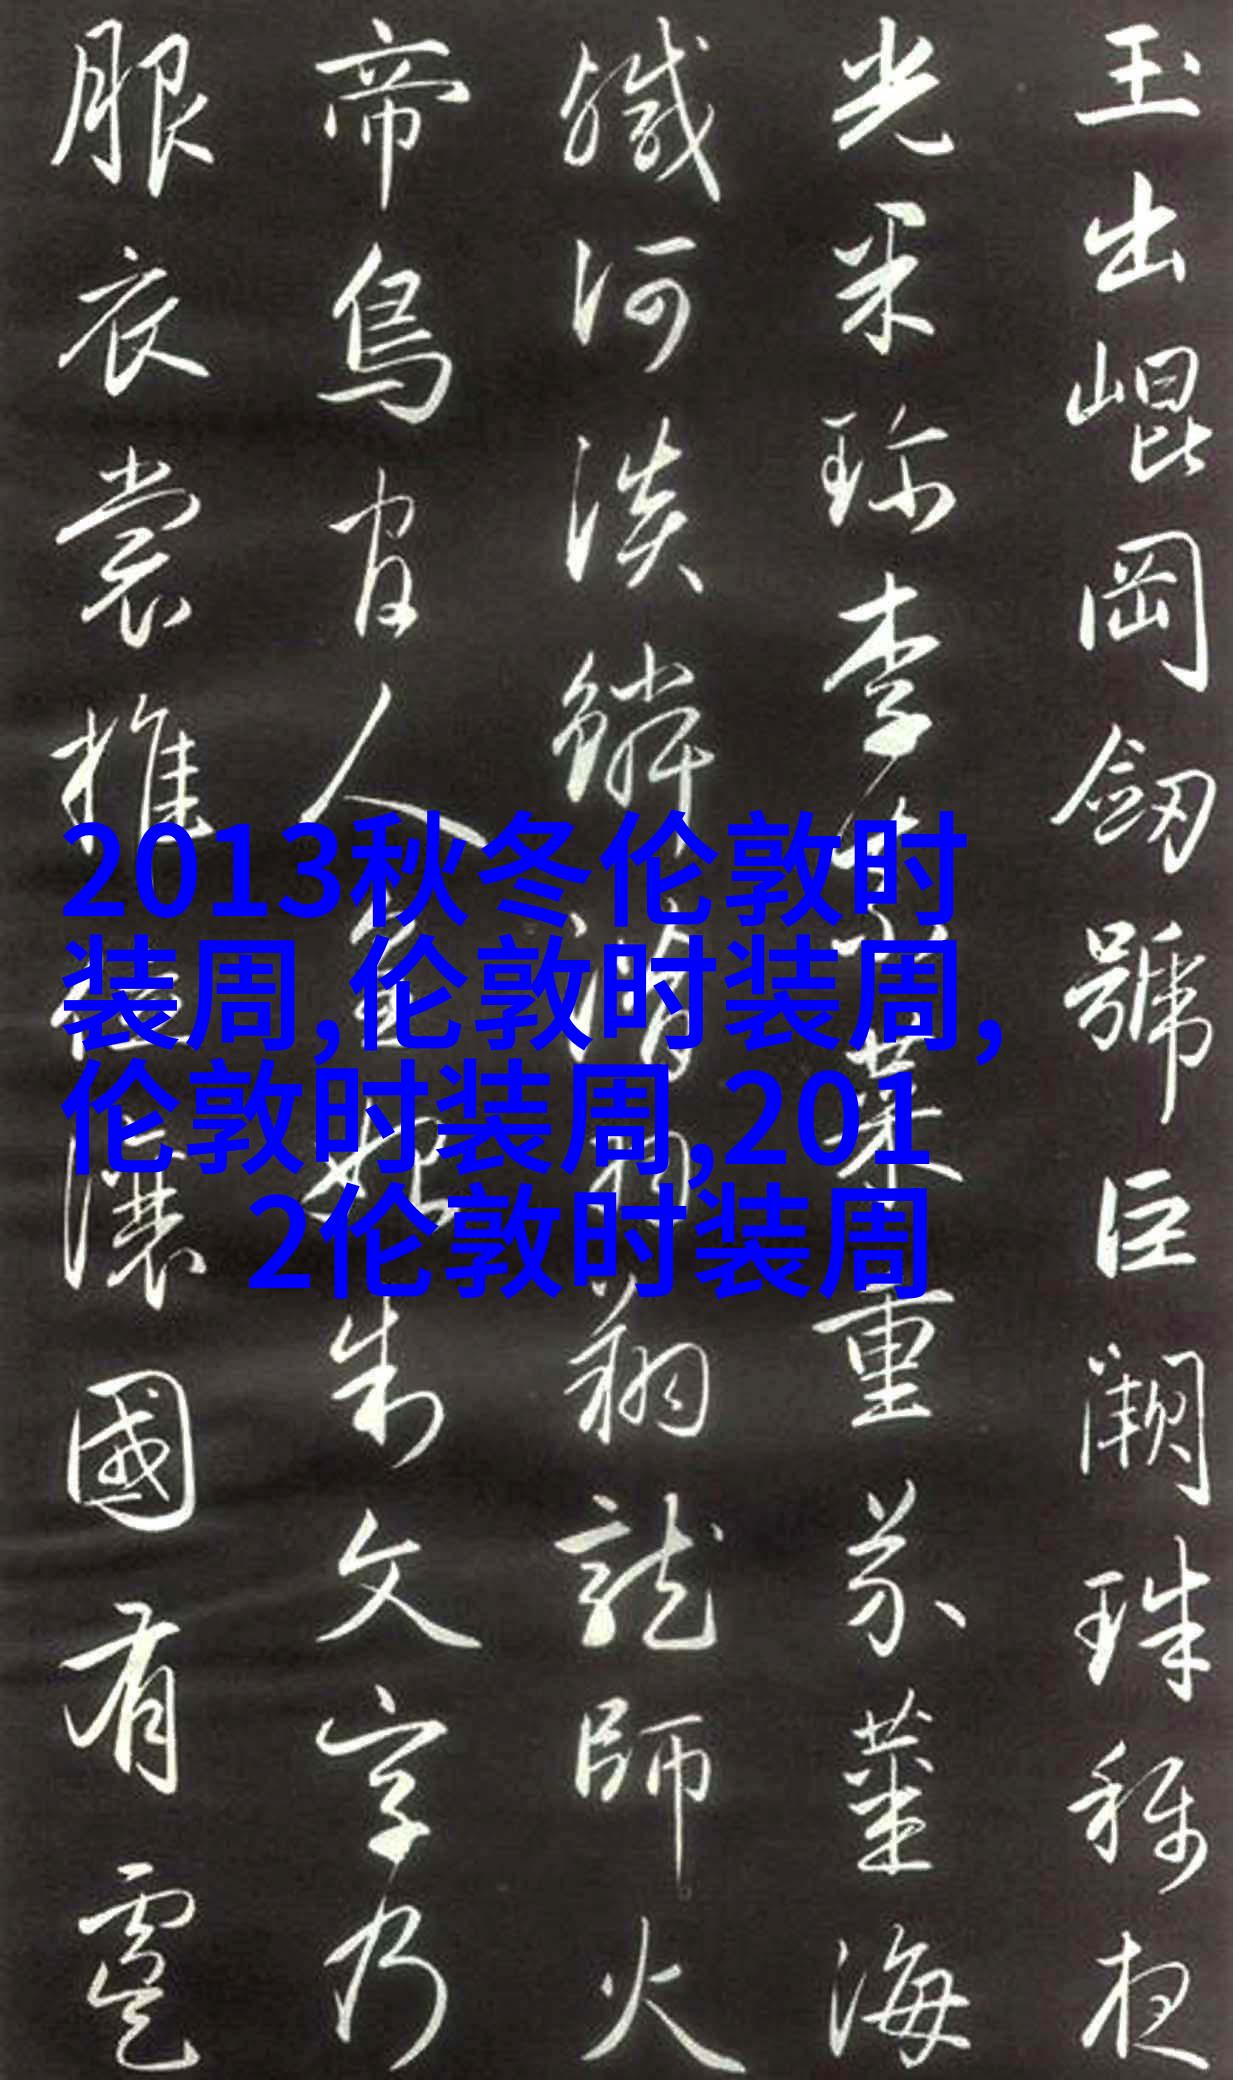 玉出崐岡劒號巨闕珠稱夜
光果珍李柰菜重芥薑海
鹹河淡鱗潛羽翔龍師火
帝鳥官人皇始制文字乃
服衣裳推位讓國有虞
2013秋冬伦敦时
装周,伦敦时装周,
伦敦时装周,201
2伦敦时装周